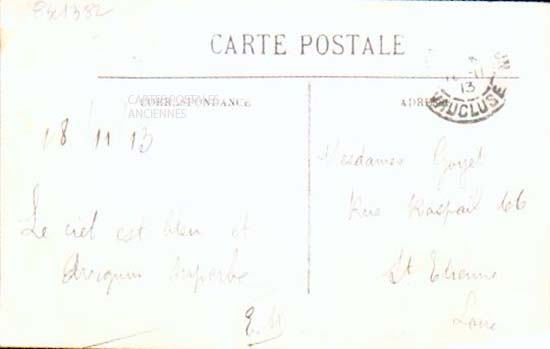 CARTE POSTALE
CORRESPONDANCE
CARTES POSTALES
ANCIENNES
18 11 13
Le ciel est bleu et
Avignon superbe
E.M
ADRESSE
13
VAUCLUSE
Mesdames Goyet
Rue Raspail 66
St Etienne
Loire